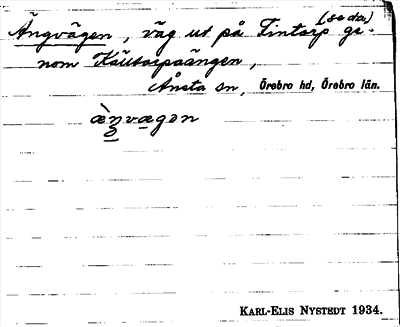 Ängvägen, väg ut på Tintorp (se da) ge-
nom Källtorpaängen,
Ånsta sn, Örebro hd, Örebro län.
æ̀ŋvægən
KARL-ELIS NYSTEDT 1934.